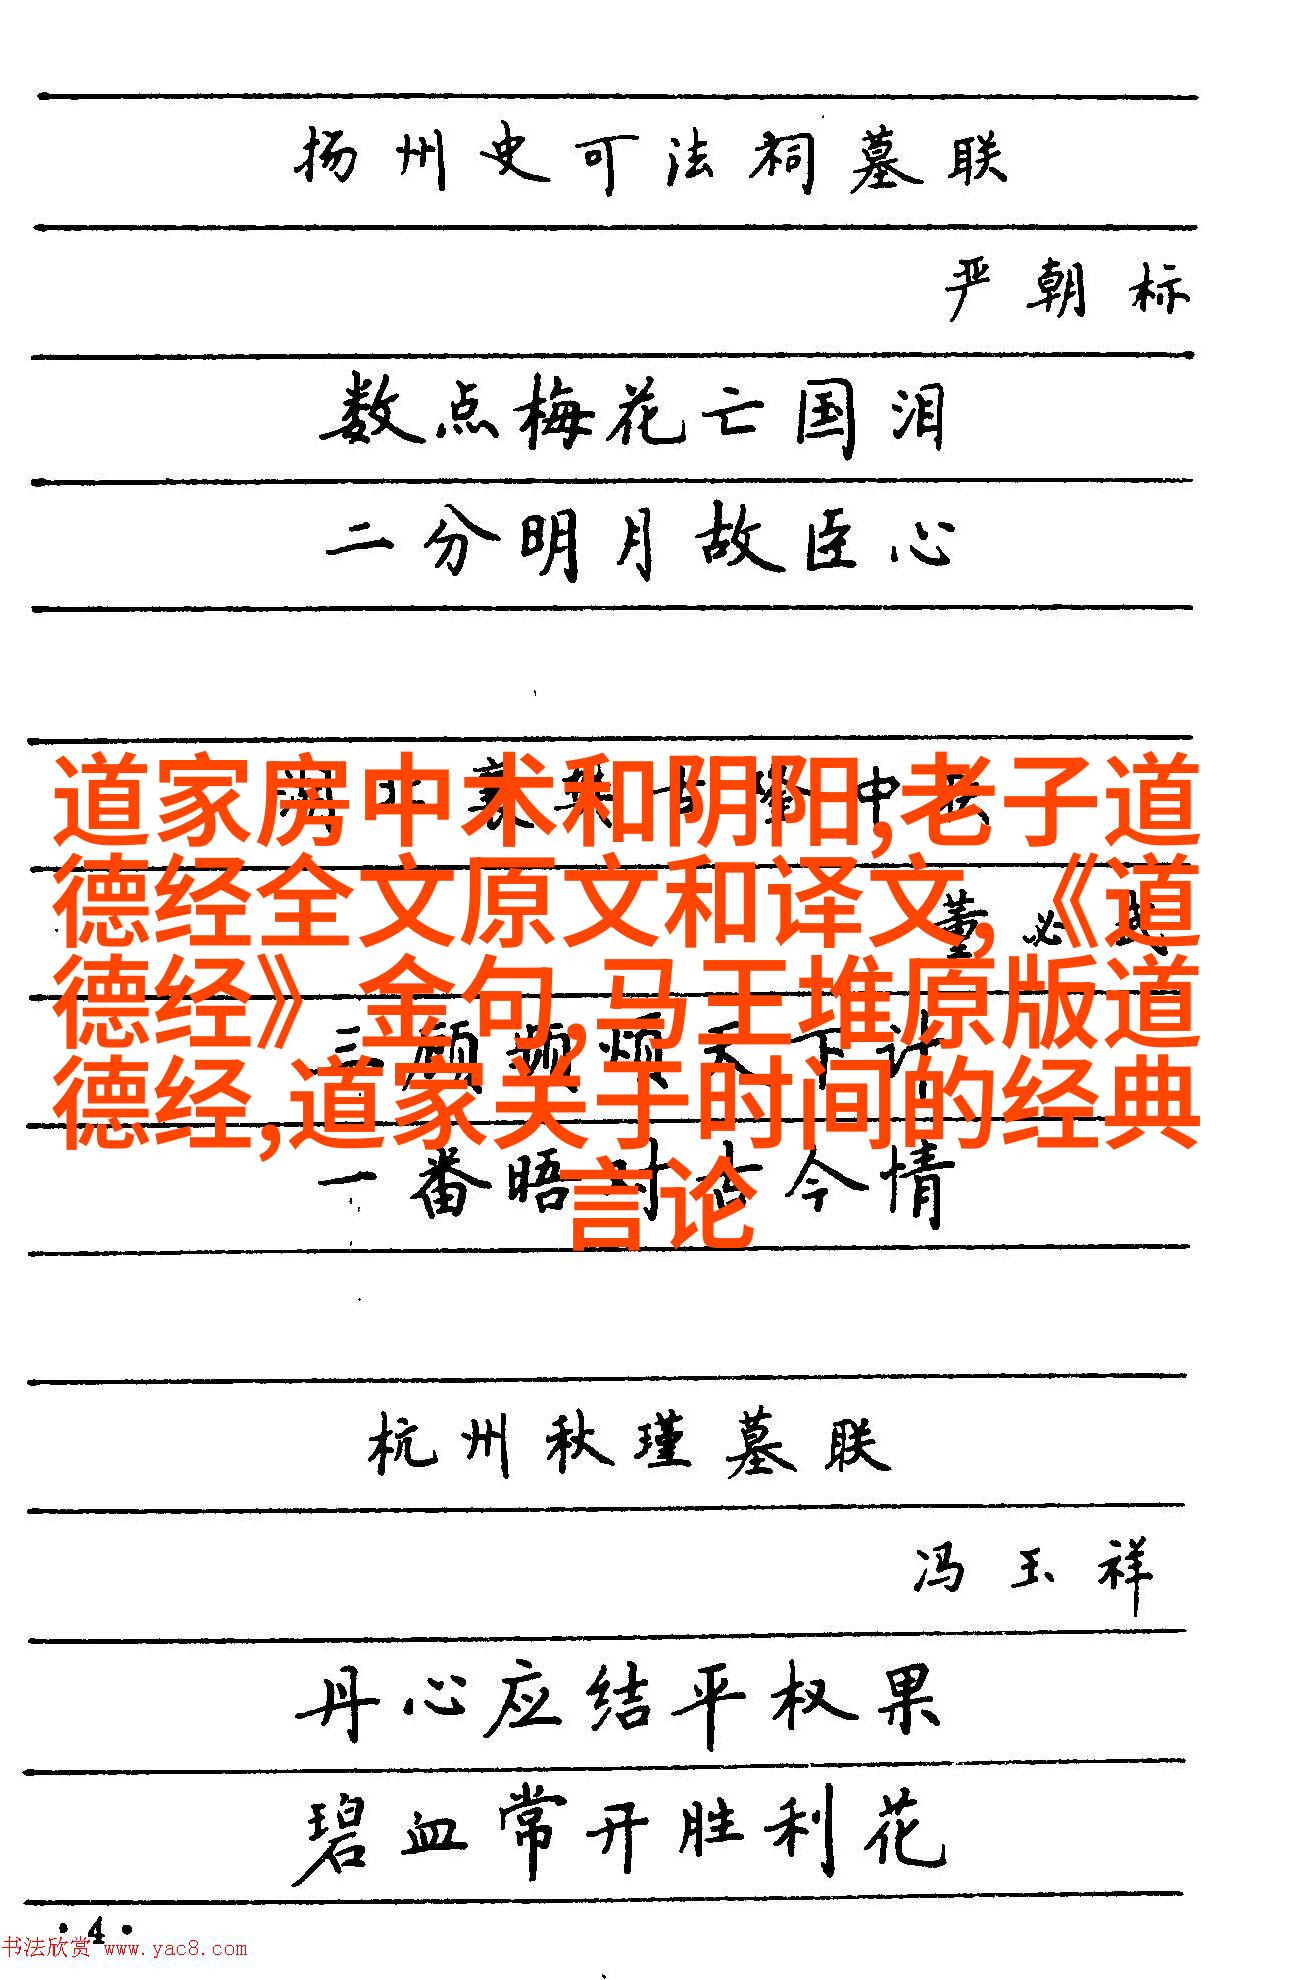 扬州史可法祠墓联
严朝标
数点梅花亡国泪
二分明月故臣心
道家房中术和阴阳,老子道
德经全文原文和译文,《道
董必武
德经》金句,马王堆原版道
三顾频烦天下计
德经,道家关于时间的经典
一番晤对古今情
言论
杭州秋瑾墓联
冯玉祥
丹心应结平权果
碧血常开胜利花
·4·
书法欣赏 www.yac8.com